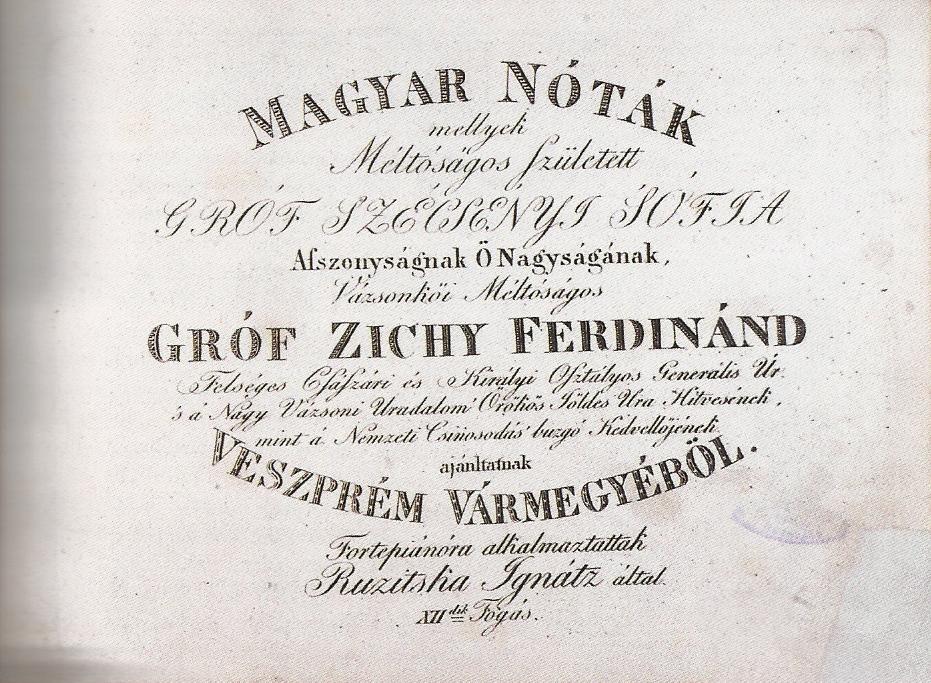 MAGYAR NÓTÁK
mellyek
Méltóságos ſzületett
GRÓF SZÉCSÉNYI SÓFIA
Aſszonyságnak Ő Nagyságának,
Vázsonkői Méltóságos
GRÓF ZICHY FERDINÁND
Felséges Cſáſzári és Királyi Oſztályos Generális Úr.
's a' Nagy Vázsoni Uradalom' Örökös Földes Ura Hitvesének,
mint a' Nemzeti Csinosodás' buzgó Kedvellőjének
ajánltatnak
VESZPRÉM VÁRMEGYÉBÖL.
Fortepiánóra alkalmaztattak
Ruzitska Ignátz által.
XII dik Fogás.